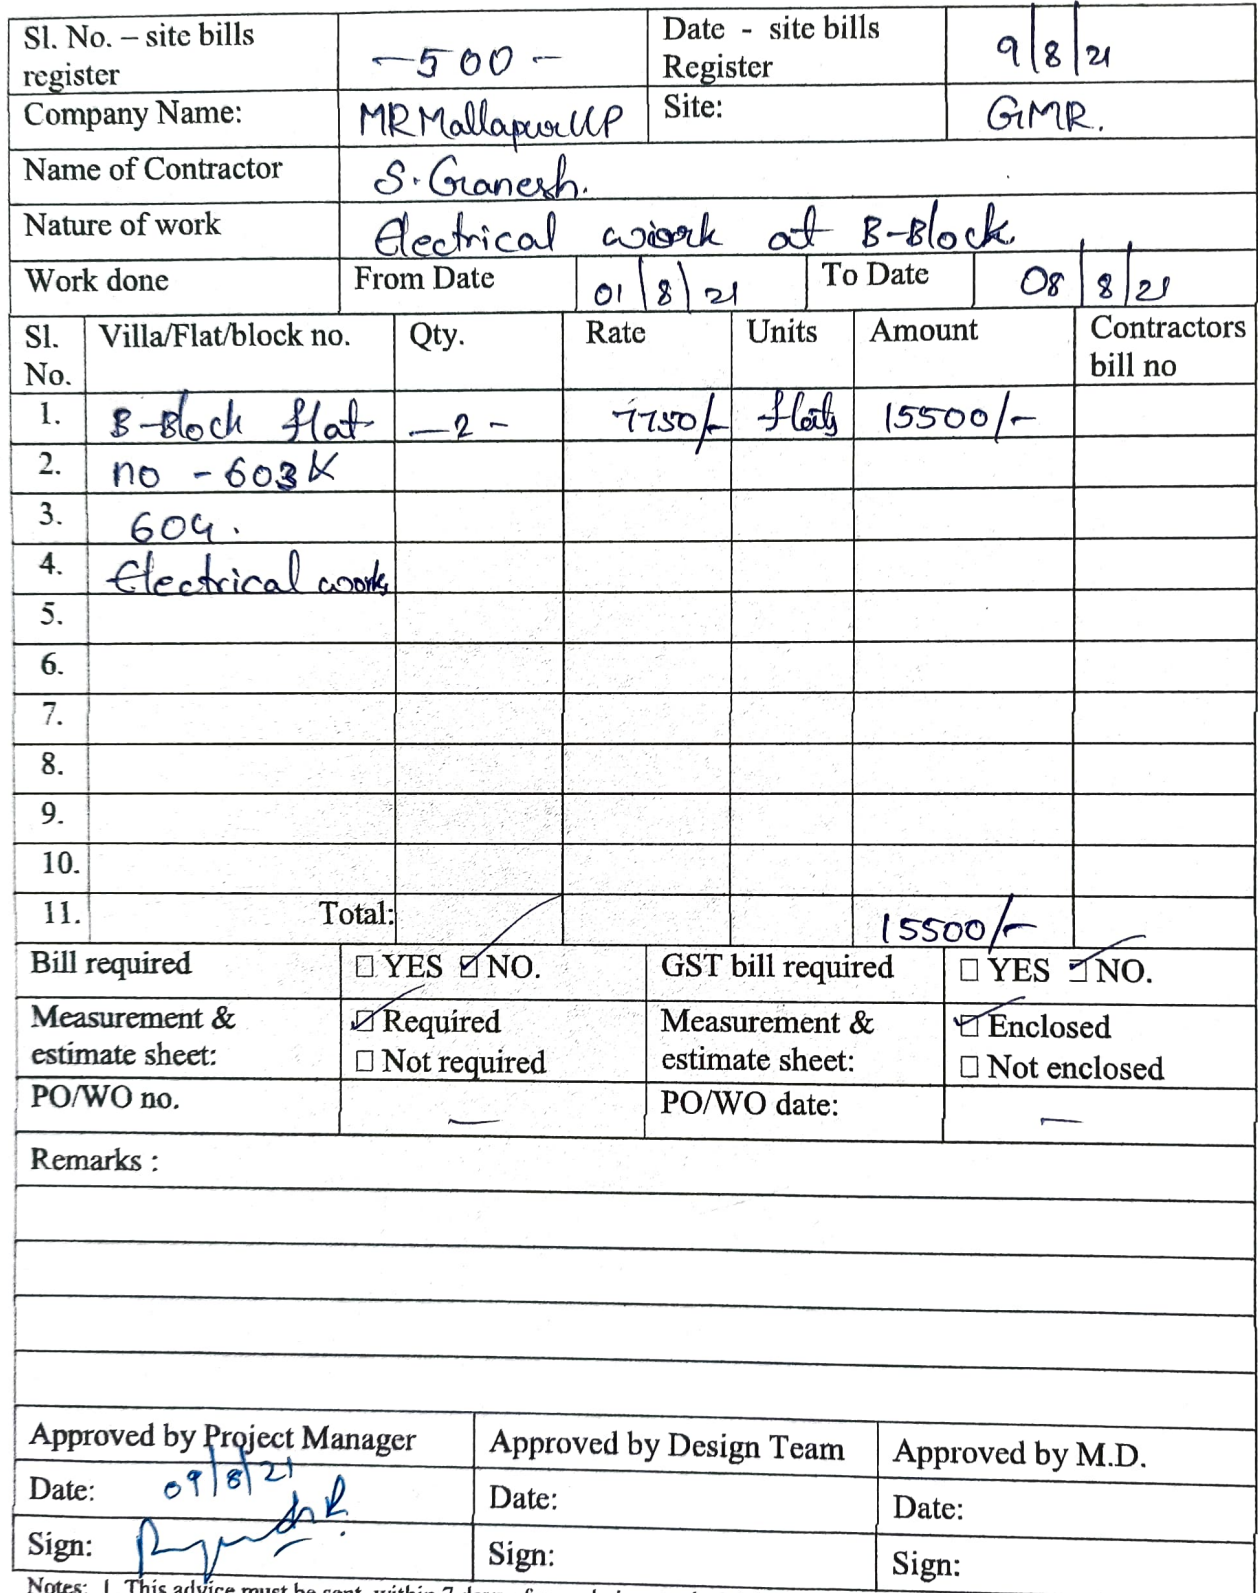 Sl. No. – site bills register —500— Date - site bills Register 9/8/21
Company Name: MR Mallapur LLP Site: GMR.
Name of Contractor S. Ganesh.
Nature of work Electrical work at B-Block
Work done From Date 01/8/21 To Date 08/8/21
Sl. No. Villa/Flat/block no. Qty. Rate Units Amount Contractors bill no
1. B-Block flat —2- 7750/- flats 15500/-
2. no - 603 &
3. 604.
4. Electrical works
5.
6.
7.
8.
9.
10.
11. Total: 15500/-
Bill required ☐ YES ☑ NO. GST bill required ☐ YES ☑ NO.
Measurement & estimate sheet: ☑ Required ☐ Not required Measurement & estimate sheet: ☑ Enclosed ☐ Not enclosed
PO/WO no. — PO/WO date: —
Remarks :
Approved by Project Manager Approved by Design Team Approved by M.D.
Date: 09/8/21 Date: Date:
Sign: Sign: Sign:
Notes: 1. This advice must be sent within 7 days